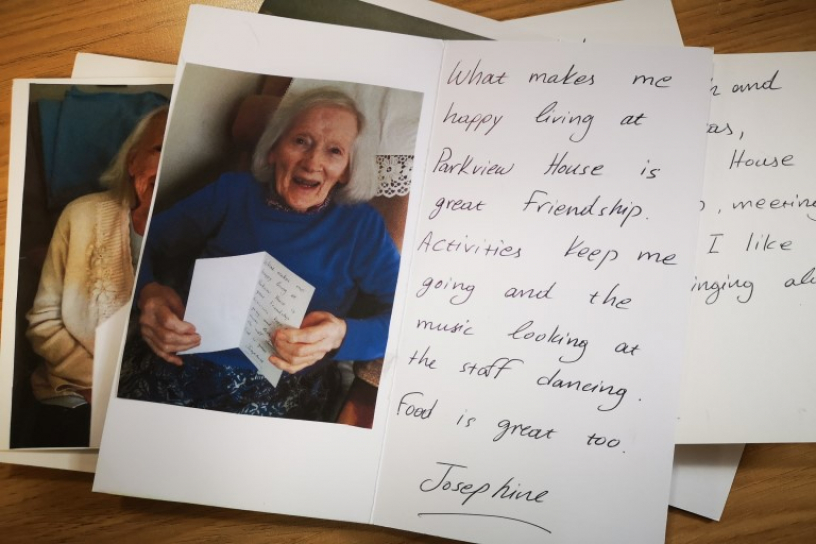 What makes me
happy living at
Parkview House is
great friendship.
Activities keep me
going and the
music looking at
the staff dancing.
Food is great too.
Josephine
and
House
, meeting
I like